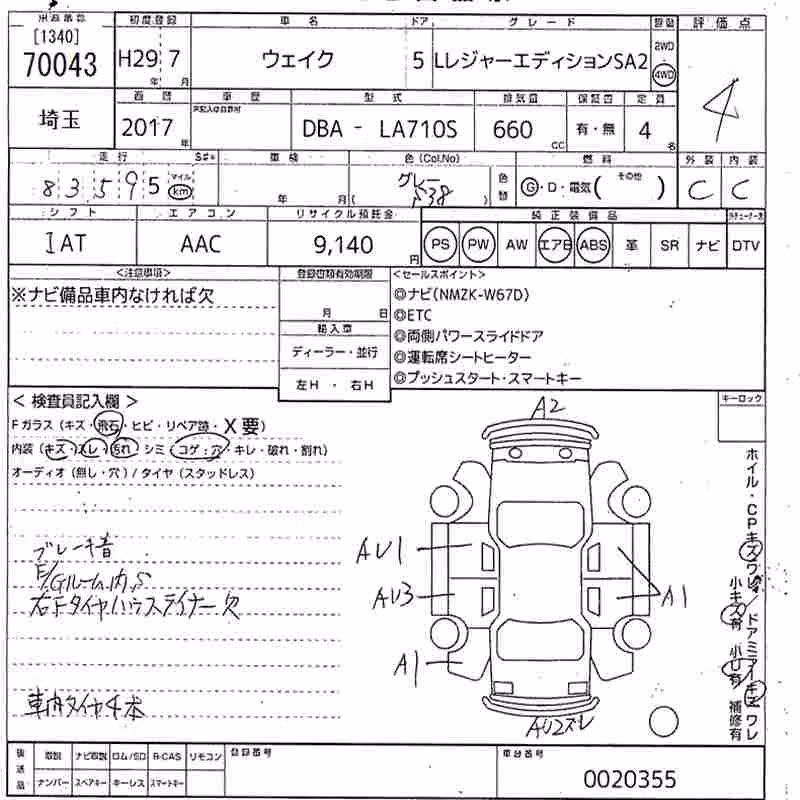 初度登録 車名 ドア グレード 評価点
[1340]
70043 H29 7 ウェイク 5 LレジャーエディションSA2 2WD 4WD 4
年 月
西暦 車歴 型式 排気量 保証書 定員
埼玉 2017 年 DBA - LA710S 660 cc 有・無 4 名
走行 車検 色(Col.No) 燃料 外装 内装
83595 マイル km 年 月 グレー S38 色替 G・D・電気( その他 ) C C
シフト エアコン リサイクル預託金 純正装備品
IAT AAC 9,140 円 PS PW AW エアB ABS 革 SR ナビ DTV
<注意事項> 登録書類有効期限 <セールスポイント>
※ナビ備品車内なければ欠 ◎ナビ(NMZK-W67D)
月 日 ◎ETC
輸入車 ◎両側パワースライドドア
ディーラー・並行 ◎運転席シートヒーター
左H ・ 右H ◎プッシュスタート・スマートキー
<検査員記入欄> キーロック
Fガラス(キズ・飛石・ヒビ・リペア跡・X要)
内装(キズ・スレ・汚れ・シミ・コゲ・穴・キレ・破れ・割れ)
オーディオ(無し・穴)/タイヤ(スタッドレス)
A2
ホイル・CPキズワレ/ドアミラーキズワレ
小キズ有 小U有 補修有
ブレーキ音
AU1
F/Gルーム内S
右Fタイヤハウスライナー欠
AU3
A1
A1
車内タイヤ4本
AU2スレ
後送品 取説 ナビ取説 ロム/SD B-CAS リモコン 登録番号 車台番号
ナンバー スペアキー キーレス スマートキー 0020355